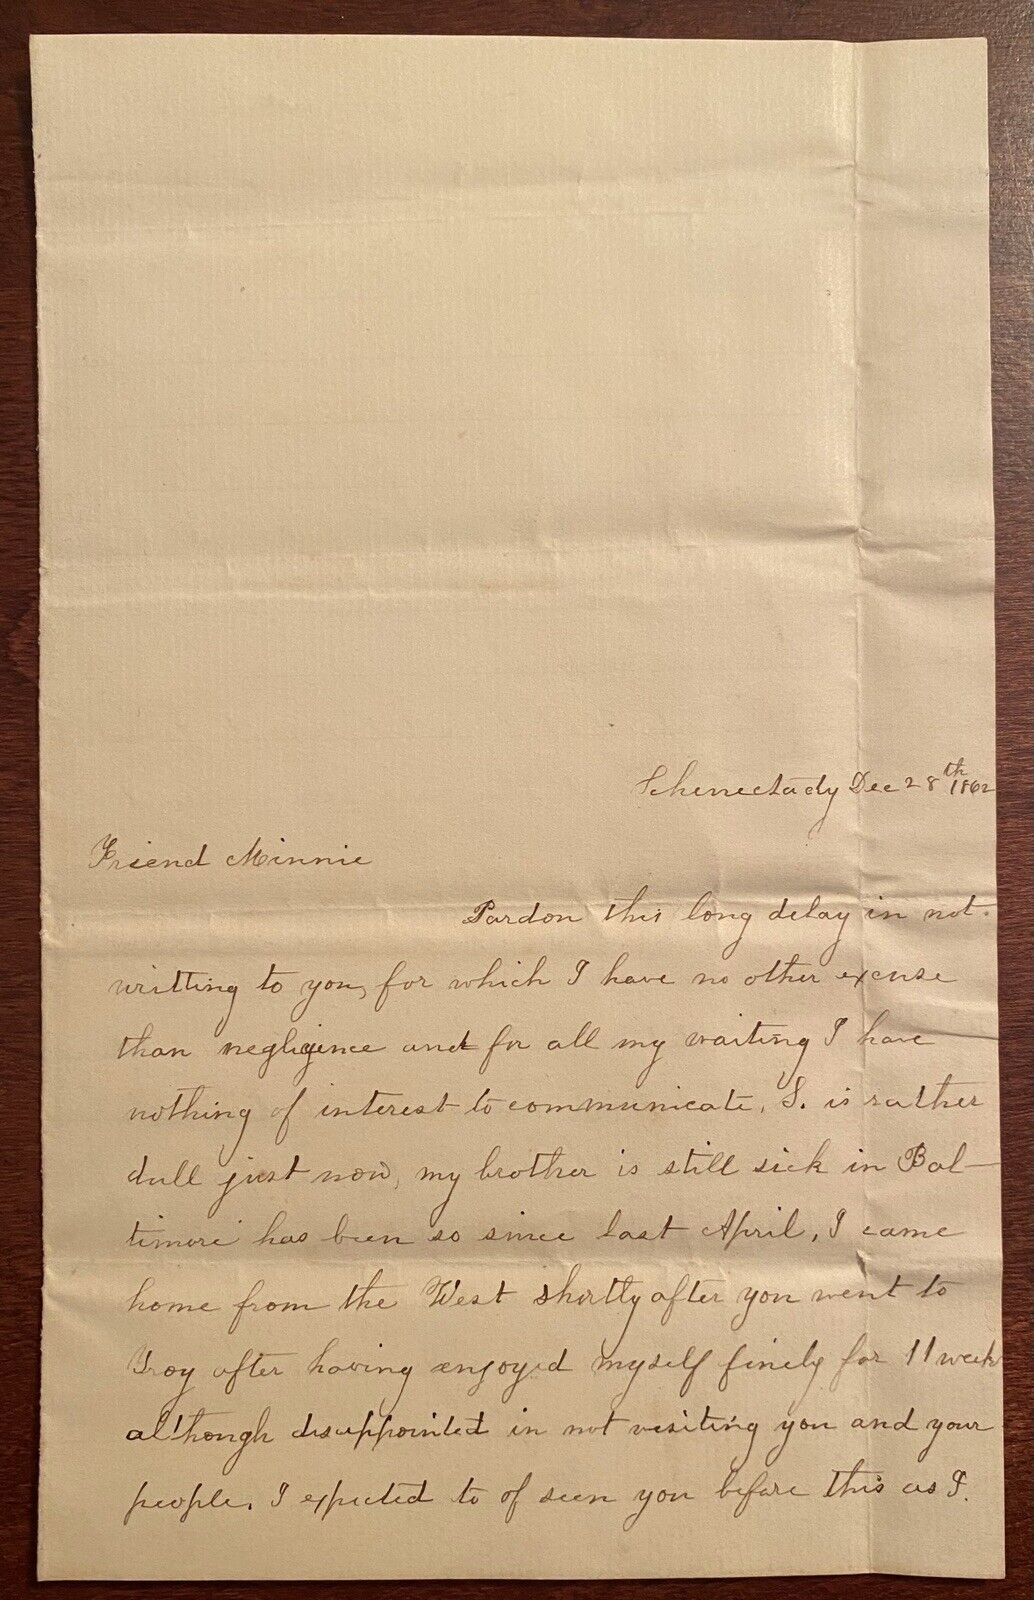 Schenectady Dec 28th 1862
Friend Minnie
Pardon this long delay in not
writting to you, for which I have no other excuse
than negligence and for all my waiting I have
nothing of interest to communicate, S. is rather
dull just now, my brother is still sick in Bal-
timore has been so since last April, I came
home from the West shortly after you went to
Troy after having enjoyed myself finely for 11 week
although disappointed in not visiting you and your
people. I expected to of seen you before this as I